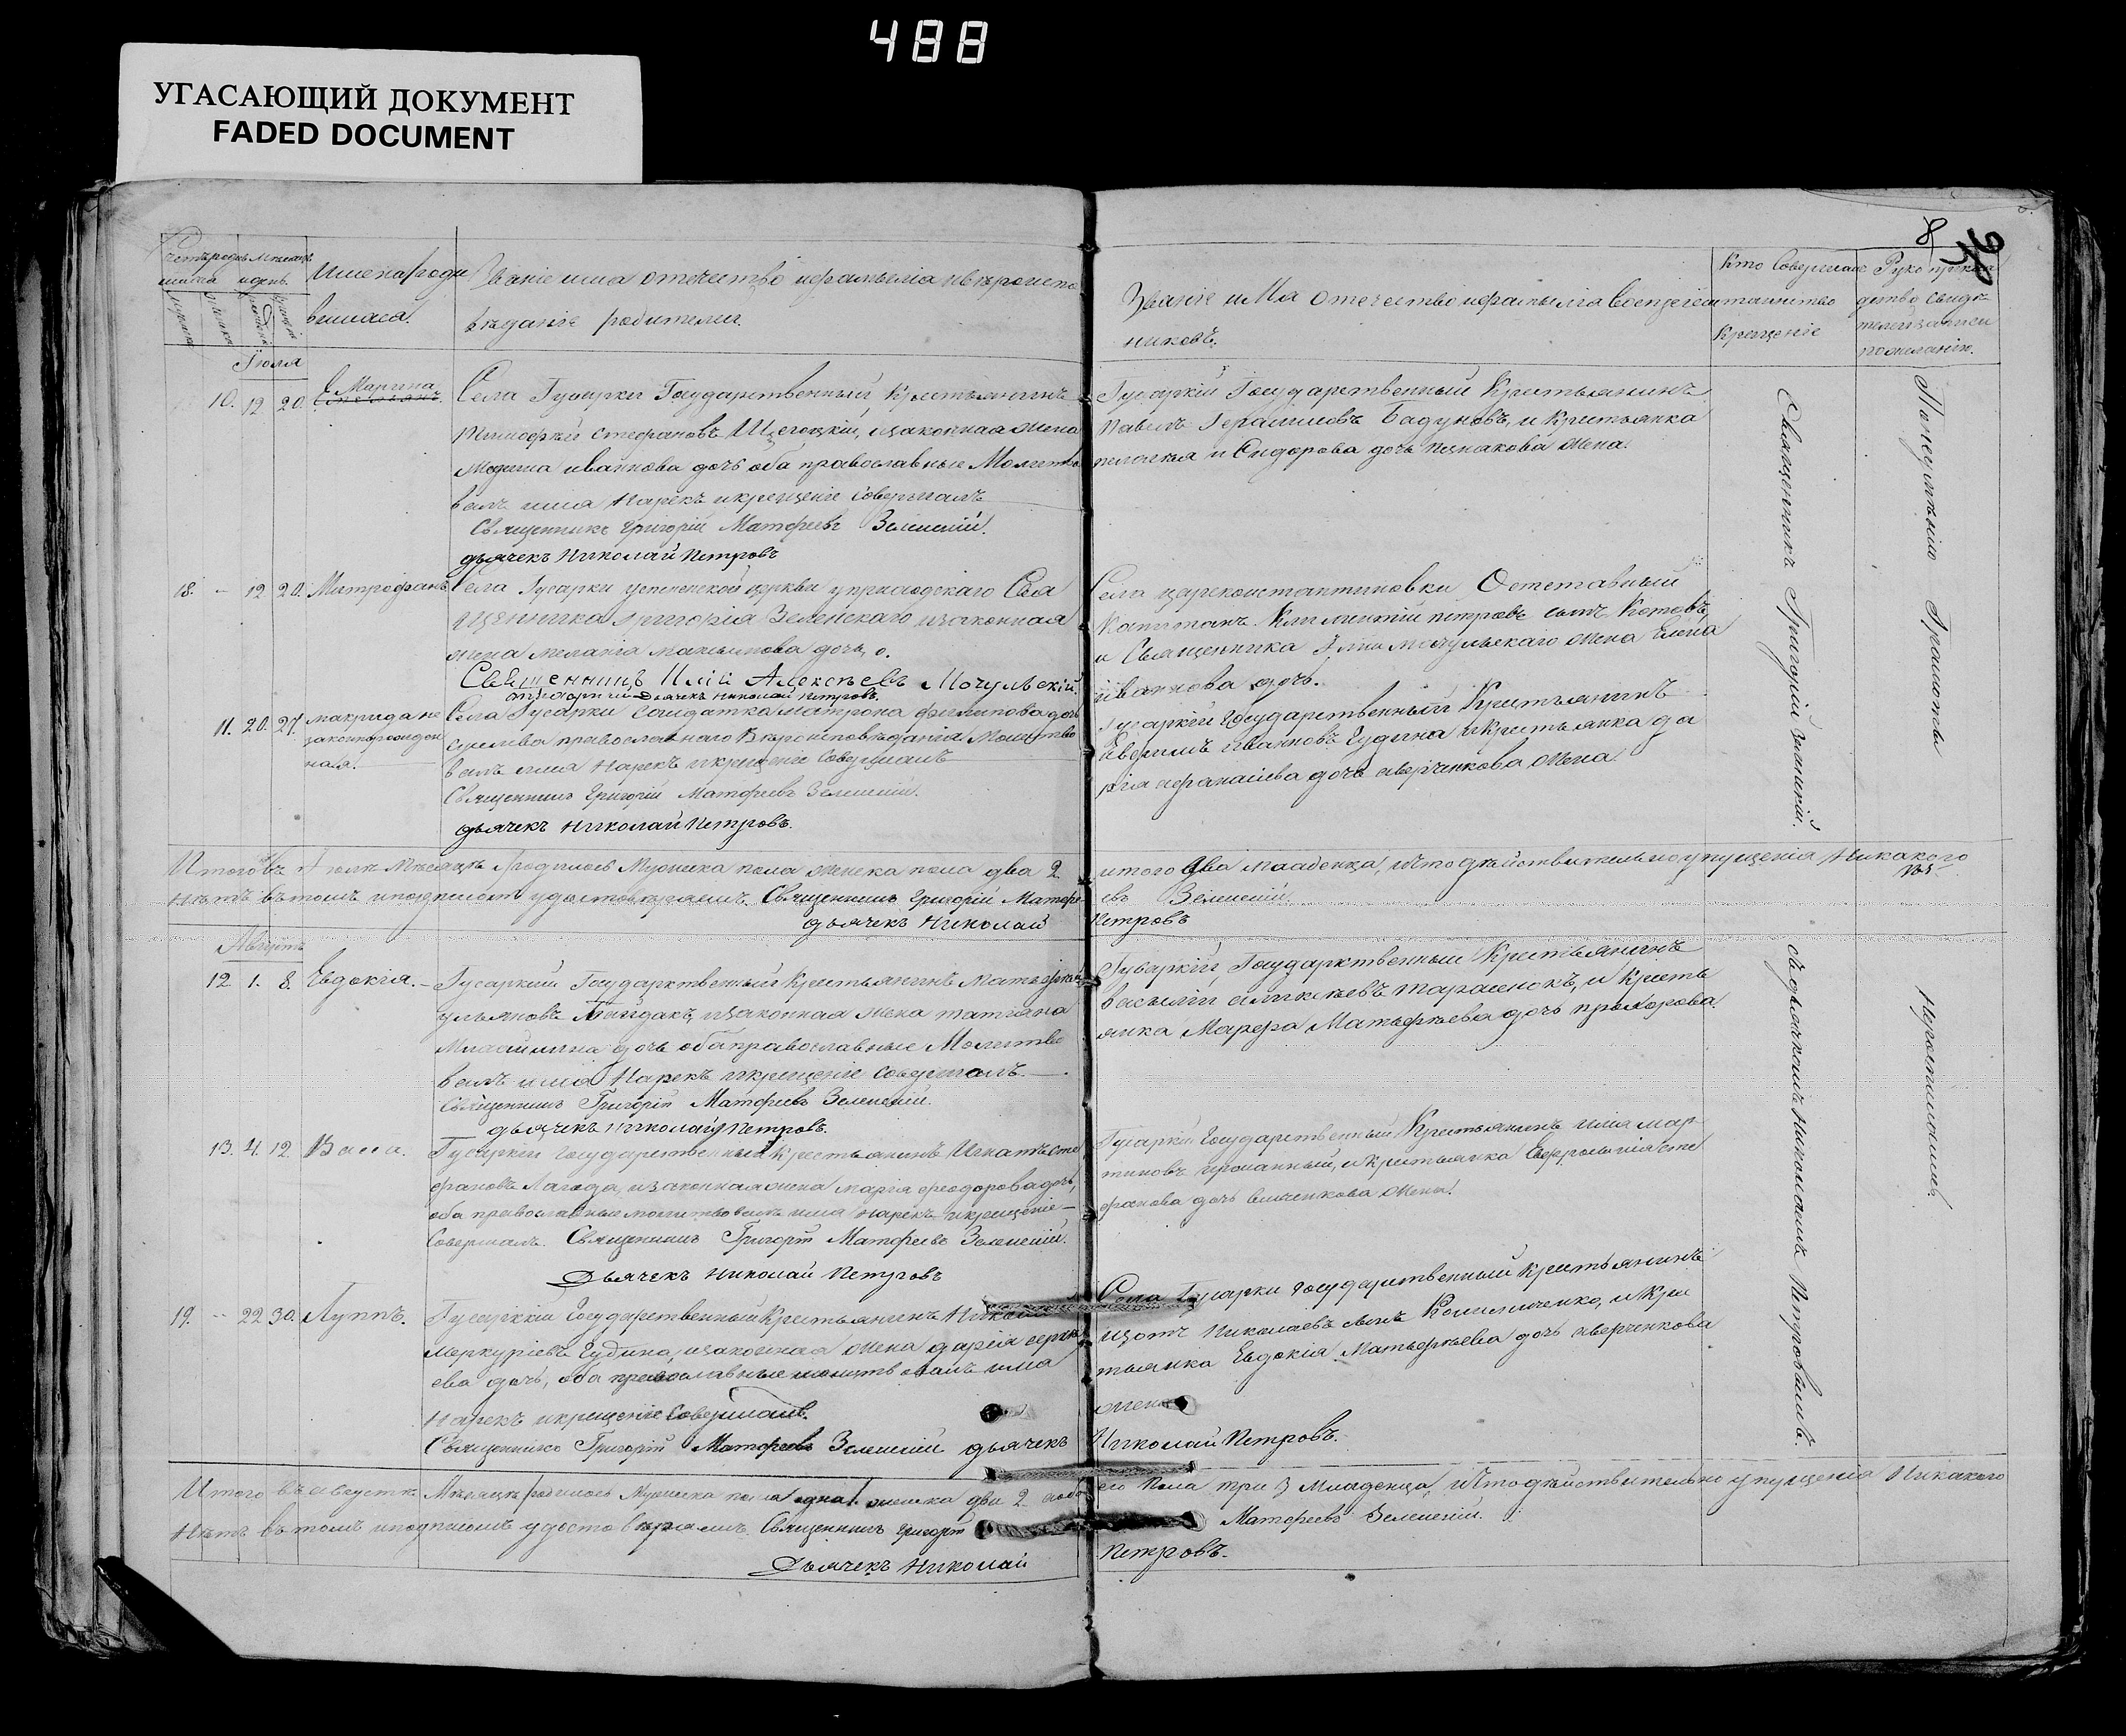 488
УГАСАЮЩИЙ ДОКУМЕНТ
FADED DOCUMENT
8
Имена роди
вшихся.
Званіе имя отечество и фамилія и вѣроиспо
вѣданіе родителей.
Званіе имя отечество и фамилія воспріем
никовъ.
Кто Совершал
таинство
Крещеніе
Руко приклад
дство свиде
телей записи
по желанію.
Іюля
10. 12 20 Марина
Села Гусарки Государственный Крестьянинъ
Тимофей Стефановъ Щегоцкій, и законная жена
иванова дочь оба православные Молитво
валъ имя Нарекъ и крещеніе Совершалъ
Священникъ Григорій Матфеевъ Зеленскій.
дьячекъ Николай Петровъ
Гусаркій Государственный Крестьянинъ
Павелъ Герасимовъ Бадуновъ, и Крестьянка
пелагея и Сидорова дочь жена.
18. – 12 20. Митрофанъ
Села Гусарки Успенской церкви у приходскаго Свя
щенника Григорія Зеленскаго и законная
жена меланія максимова дочь.
Священникъ Илій Алексѣевъ Мочульскій.
дьячекъ Николай Петровъ.
Села Цареконстантиновки Отставный
Капитанъ Климентій петровъ сынъ Котовъ,
и Священника Іліи мочульскаго жена Елена
иванова дочь.
11. 20. 27. макрида не
законнорожден
ная.
Села Гусарки Солдатка матрона филипова дочь
православнаго Вѣроисповѣданія Молитво
валъ имя Нарекъ и крещеніе Совершалъ
Священникъ Григорій Матфеевъ Зеленскій.
дьячекъ Николай Петровъ.
Гусаркій Государственный Крестьянинъ
Евфимъ Ивановъ Гудина и Крестьянка да
рія афанасіева дочь аверченкова жена.
Священникъ Григорій Зеленскій.
По неумѣнію Грамоты
Итого въ Іюлѣ Мѣсяцѣ родилось Мужеска пола женска пола два 2
итого два младенца, и что дѣйствительно упущенія Никакого
Нѣтъ въ томъ и подписомъ удостовѣряемъ. Священникъ Григорій Матфе
евъ Зеленскій.
дьячекъ Николай
Петровъ
Августъ
12 1. 8. Евдокія.
Гусаркій Государственный Крестьянинъ Матѳѣй
ульяновъ Пайдакъ, и законная жена татіана
Михайлина дочь оба православные Молитво
валъ имя Нарекъ и крещеніе Совершалъ.
Священникъ Григорій Матфеевъ Зеленскій.
дьячекъ Николай Петровъ.
Гусаркій, Государственный Крестьянинъ
василій алексѣевъ тарасенокъ, и Кресть
янка Марфа Матвѣева дочь прохорова.
13. 4. 12. Васса.
Гусаркій Государственный Крестьянинъ Игнатъ сте
фановъ Лагода, и законная жена марія феодорова дочь,
оба православные молитвовалъ имя нарекъ и крещеніе
Совершалъ. Священникъ Григорій Матфеевъ Зеленскій.
Дьячекъ Николай Петровъ
Гусаркій Государственный Крестьянинъ илія мар
тиновъ, и крестьянка Евфросинія сте
фанова дочь жена.
19. – 22 30. Луппъ.
Гусаркій Государственный Крестьянинъ Николай
Меркуріевъ Гудина, и законная жена дарія сергѣ
ева дочь, оба православные молитвовалъ имя
Нарекъ и крещеніе Совершалъ.
Священникъ Григорій Матфеевъ Зеленскій дьячекъ
Николай Петровъ.
Села Гусарки Государственный Крестьянинъ
изотъ Николаевъ сынъ Комличенко, и Кре
тьянка Евдокія Матвѣева дочь аверченкова
жена
Съ дьячкомъ Николаемъ Петровымъ.
Итого въ августѣ Мѣсяцѣ родилось Мужеска пола одна 1. женска два 2. обо
его Пола три 3 Младенца, и что дѣйствительно упущенія Никакого
Нѣтъ въ томъ и подписомъ удостовѣряемъ. Священникъ Григорій
Матфеевъ Зеленскій.
Дьячекъ Николай
Петровъ.